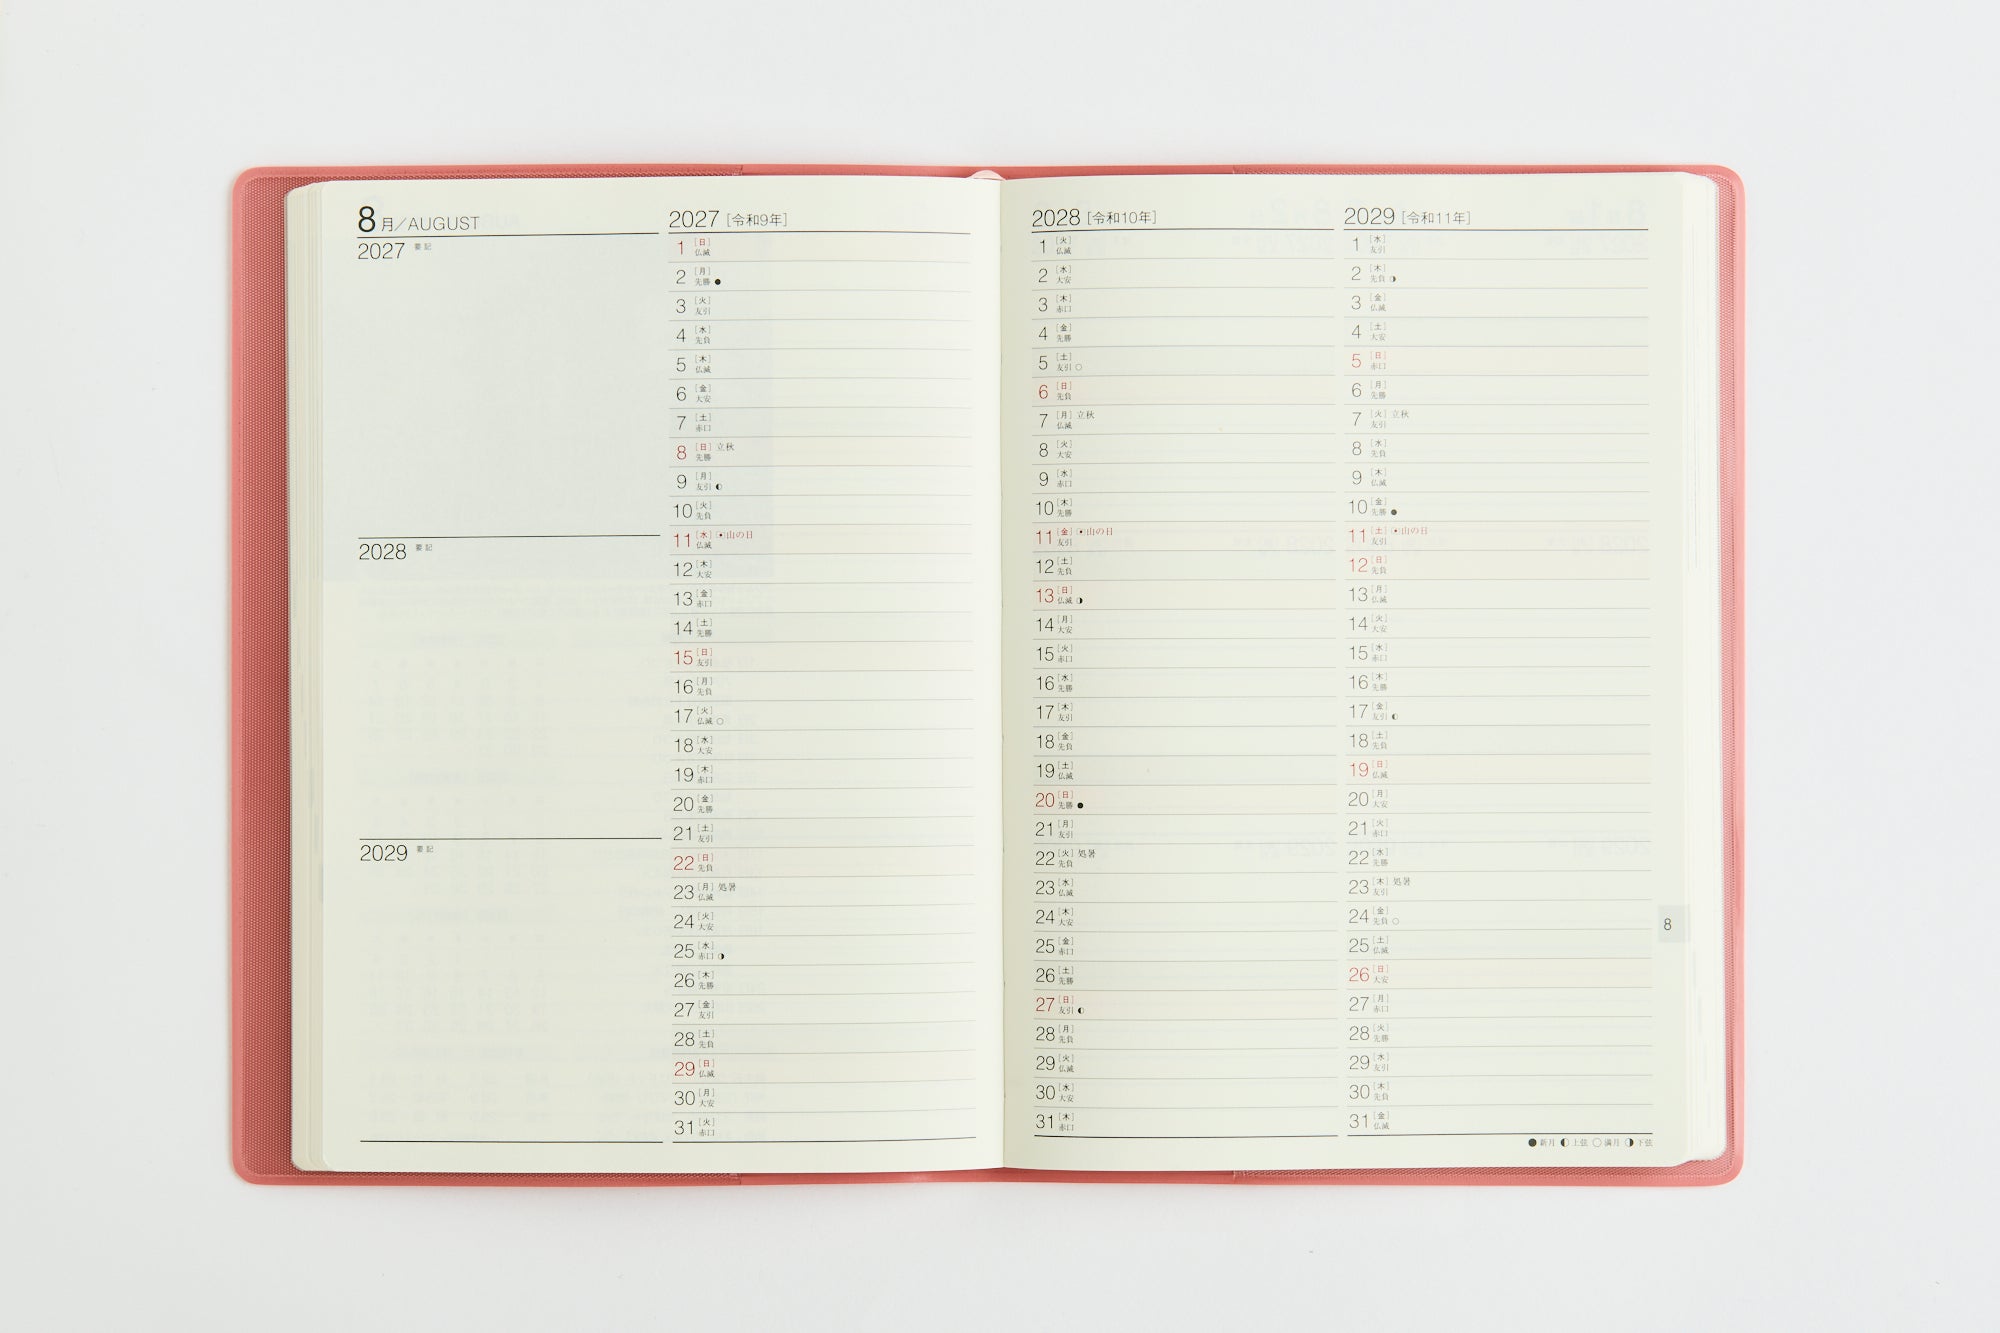 8月／AUGUST
2027 要記
2028 要記
2029 要記
2027［令和9年］
1［日］
仏滅
2［月］
先勝 ●
3［火］
友引
4［水］
先負
5［木］
仏滅
6［金］
大安
7［土］
赤口
8［日］立秋
先勝
9［月］
友引 ◐
10［火］
先負
11［水］山の日
仏滅
12［木］
大安
13［金］
赤口
14［土］
先勝
15［日］
友引
16［月］
先負
17［火］
仏滅 ○
18［水］
大安
19［木］
赤口
20［金］
先勝
21［土］
友引
22［日］
先負
23［月］処暑
仏滅
24［火］
大安
25［水］
赤口 ◑
26［木］
先勝
27［金］
友引
28［土］
先負
29［日］
仏滅
30［月］
大安
31［火］
赤口
2028［令和10年］
1［火］
仏滅
2［水］
大安
3［木］
赤口
4［金］
先勝
5［土］
友引 ○
6［日］
先負
7［月］立秋
仏滅
8［火］
大安
9［水］
赤口
10［木］
先勝
11［金］山の日
友引
12［土］
先負
13［日］
仏滅 ◑
14［月］
大安
15［火］
赤口
16［水］
先勝
17［木］
友引
18［金］
先負
19［土］
仏滅
20［日］
先勝 ●
21［月］
友引
22［火］処暑
先負
23［水］
仏滅
24［木］
大安
25［金］
赤口
26［土］
先勝
27［日］
友引 ◐
28［月］
先負
29［火］
仏滅
30［水］
大安
31［木］
赤口
2029［令和11年］
1［水］
友引
2［木］
先負 ◑
3［金］
仏滅
4［土］
大安
5［日］
赤口
6［月］
先勝
7［火］立秋
友引
8［水］
先負
9［木］
仏滅
10［金］
先勝 ●
11［土］山の日
友引
12［日］
先負
13［月］
仏滅
14［火］
大安
15［水］
赤口
16［木］
先勝
17［金］
友引 ◐
18［土］
先負
19［日］
仏滅
20［月］
大安
21［火］
赤口
22［水］
先勝
23［木］処暑
友引
24［金］
先負 ○
25［土］
仏滅
26［日］
大安
27［月］
赤口
28［火］
先勝
29［水］
友引
30［木］
先負
31［金］
仏滅
●新月 ◐上弦 ○満月 ◑下弦
8